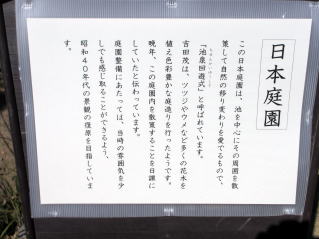 日本庭園
この日本庭園は、池を中心にその周囲を散
策して自然の移り変わりを愛でるもので、
「池泉回遊式」と呼ばれています。
吉田茂は、ツツジやウメなど多くの花木を
植え色彩豊かな庭造りを行ったようです。
晩年、この庭園内を散策することを日課に
していたと伝わっています。
庭園整備にあたっては、当時の雰囲気を少
しでも感じ取ることができるよう、
昭和４０年代の景観の復原を目指していま
す。